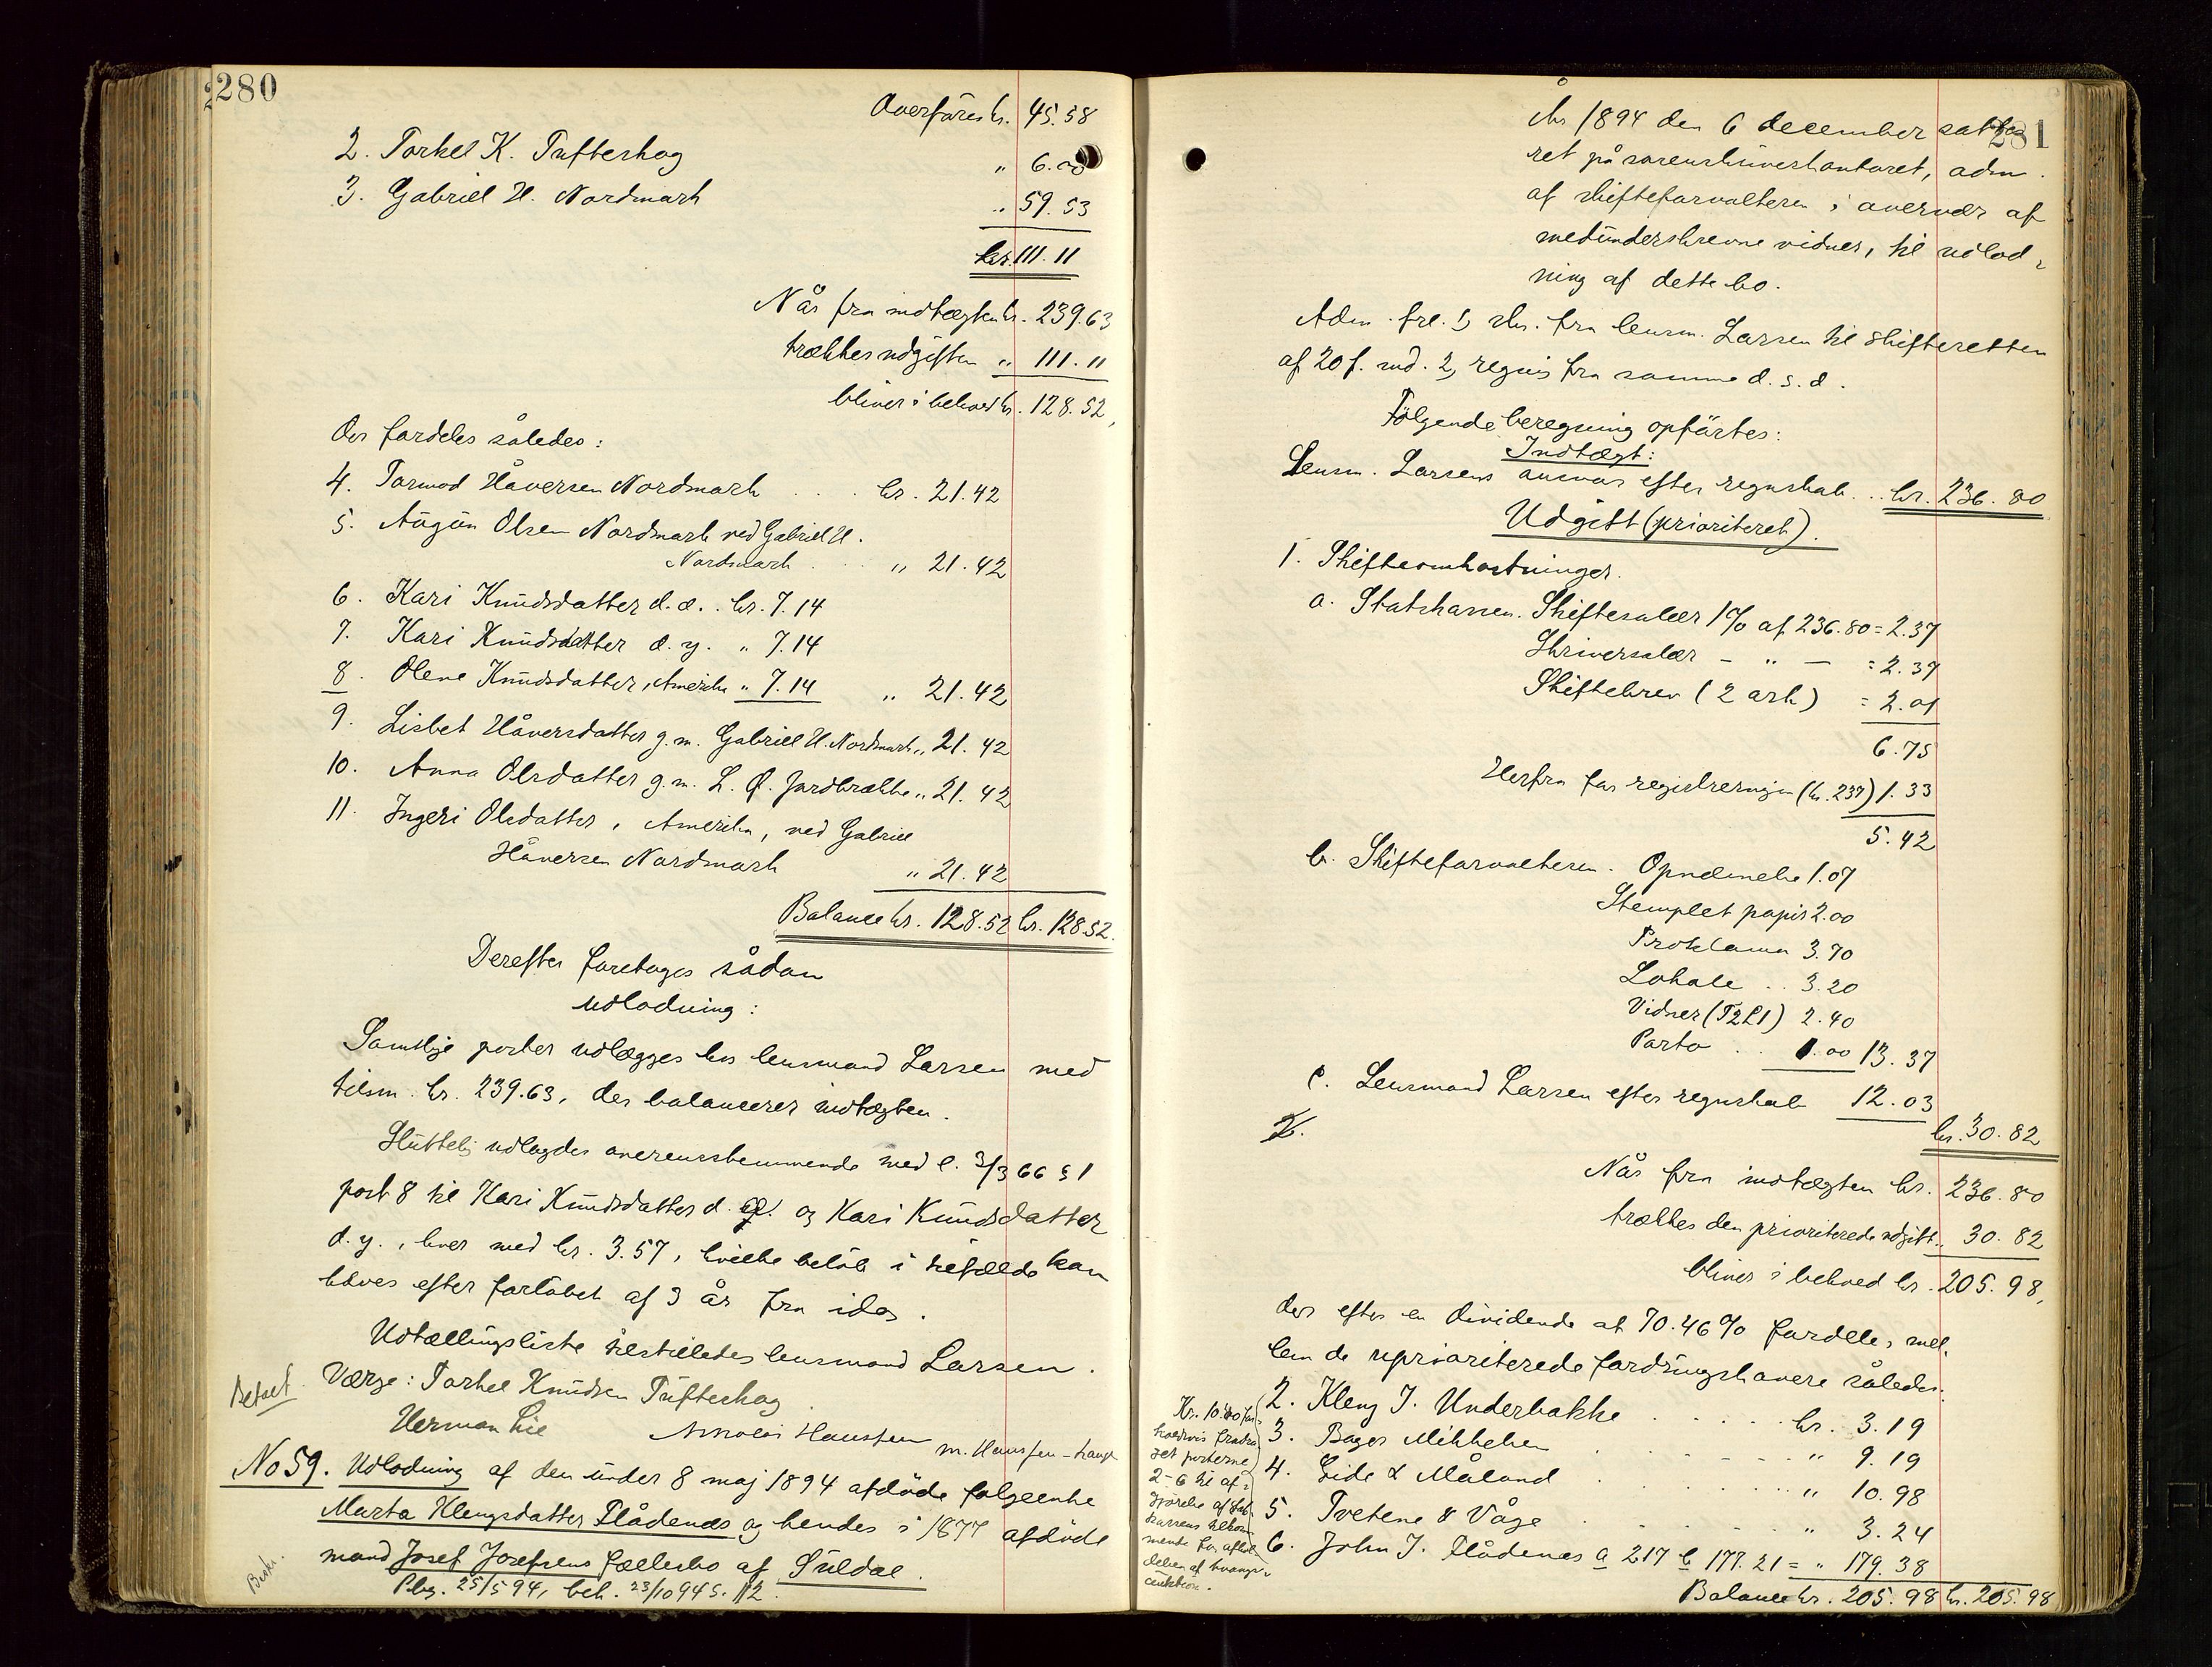 280
Overføres kr. 45.58
2. Torkel K. Tufteskog " 6.00
3. Gabriel H. Nordmark " 59.53
kr. 111.11
Når fra indtægten kr. 239.63
trækkes udgiften " 111.11
bliver i behold kr. 128.52,
der fordeles således:
4. Tormod Håversen Nordmark . . . kr. 21.42
5. Augun Olsen Nordmark ved Gabriel H.
Nordmark . . . " 21.42
6. Kari Knudsdatter d. æ. . kr. 7.14
7. Kari Knudsdatter d. y. " 7.14
8. Olene Knudsdatter, Amerika " 7.14 " 21.42
9. Lisbet Håversdatter g. m. Gabriel H. Nordmark " 21.42
10. Anna Olsdatter g. m. L. Ø. Jordbrække " 21.42
11. Ingeri Olsdatter, Amerika, ved Gabriel
Håversen Nordmark " 21.42
Balance kr. 128.52 kr. 128.52
Derefter foretoges sådan
udlodning:
Samtlige poster udlægges hos lensmand Larsen med
tilsm. kr. 239.63, der balancerer indtægten.
Sluttelig udlagdes overensstemmende med l. 3/3 66 § 1
post 8 til Kari Knudsdatter d. æ. og Kari Knudsdatter
d. y., hver med kr. 3.57, hvilke beløb i tilfælde kan
hæves efter forløbet af 3 år fra idag.
Udtællingsliste tilstilledes lensmand Larsen.
Værge: Torkel Knudsen Tufteskog
Herman Lie
No 59. Udlodning af den under 8 maj 1894 afdøde folgeenke
Marta Klengsdatter Flådenes og hendes i 1877 afdøde
mand Josef Josefsens fællesbo af Suldal.
Pbg. 25/5 94, beh. 23/10 94 S. 112.
281
År 1894 den 6 december sattes
ret på sorenskriverkontoret, adm.
af skifteforvalteren i overvær af
medunderskrevne vidner, til udlod-
ning af dette bo.
Adm. frl. 1, skr. fra lensm. Larsen til skifteretten
af 20 f. md. 2, regnis fra samme d. s. d.
Følgende beregning opførtes:
Indtægt:
Lensm. Larsens ansvar efter regnskab . . kr. 236.80
Udgift (prioriteret).
1. Skifteomkostninger.
a. Statskassen. Skiftesalær 1% af 236.80 = 2.37
Skriversalær - " - = 2.37
Skiftebrev (2 ark) = 2.01
6.75
Herfra for registreringen (kr. 237) 1.33
5.42
b. Skifteforvalteren. Opnævnelse 1.07
Stemplet papir 2.00
Proklama 3.70
Lokale . . 3.20
Vidner (T2L1) 2.40
Porto . . 1.00 13.37
c. Lensmand Larsen efter regnskab 12.03
kr. 30.82
Når fra indtægten kr. 236.80
trækkes den prioriterede udgift " 30.82
bliver i behold kr. 205.98,
der efter en dividende at 70.46% fordeles mel-
lem de uprioriterede fordringshavere således:
2. Kleng J. Underbakke . . . . . kr. 3.19
3. Bager Mikkelsen . . . . " 9.19
4. Eide & Måland . . . . " 10.98
5. Tvetene & Våge . . . . " 3.24
6. John J. Flådenes a 217 b 177.21 = " 179.38
Balance kr. 205.98 kr. 205.98